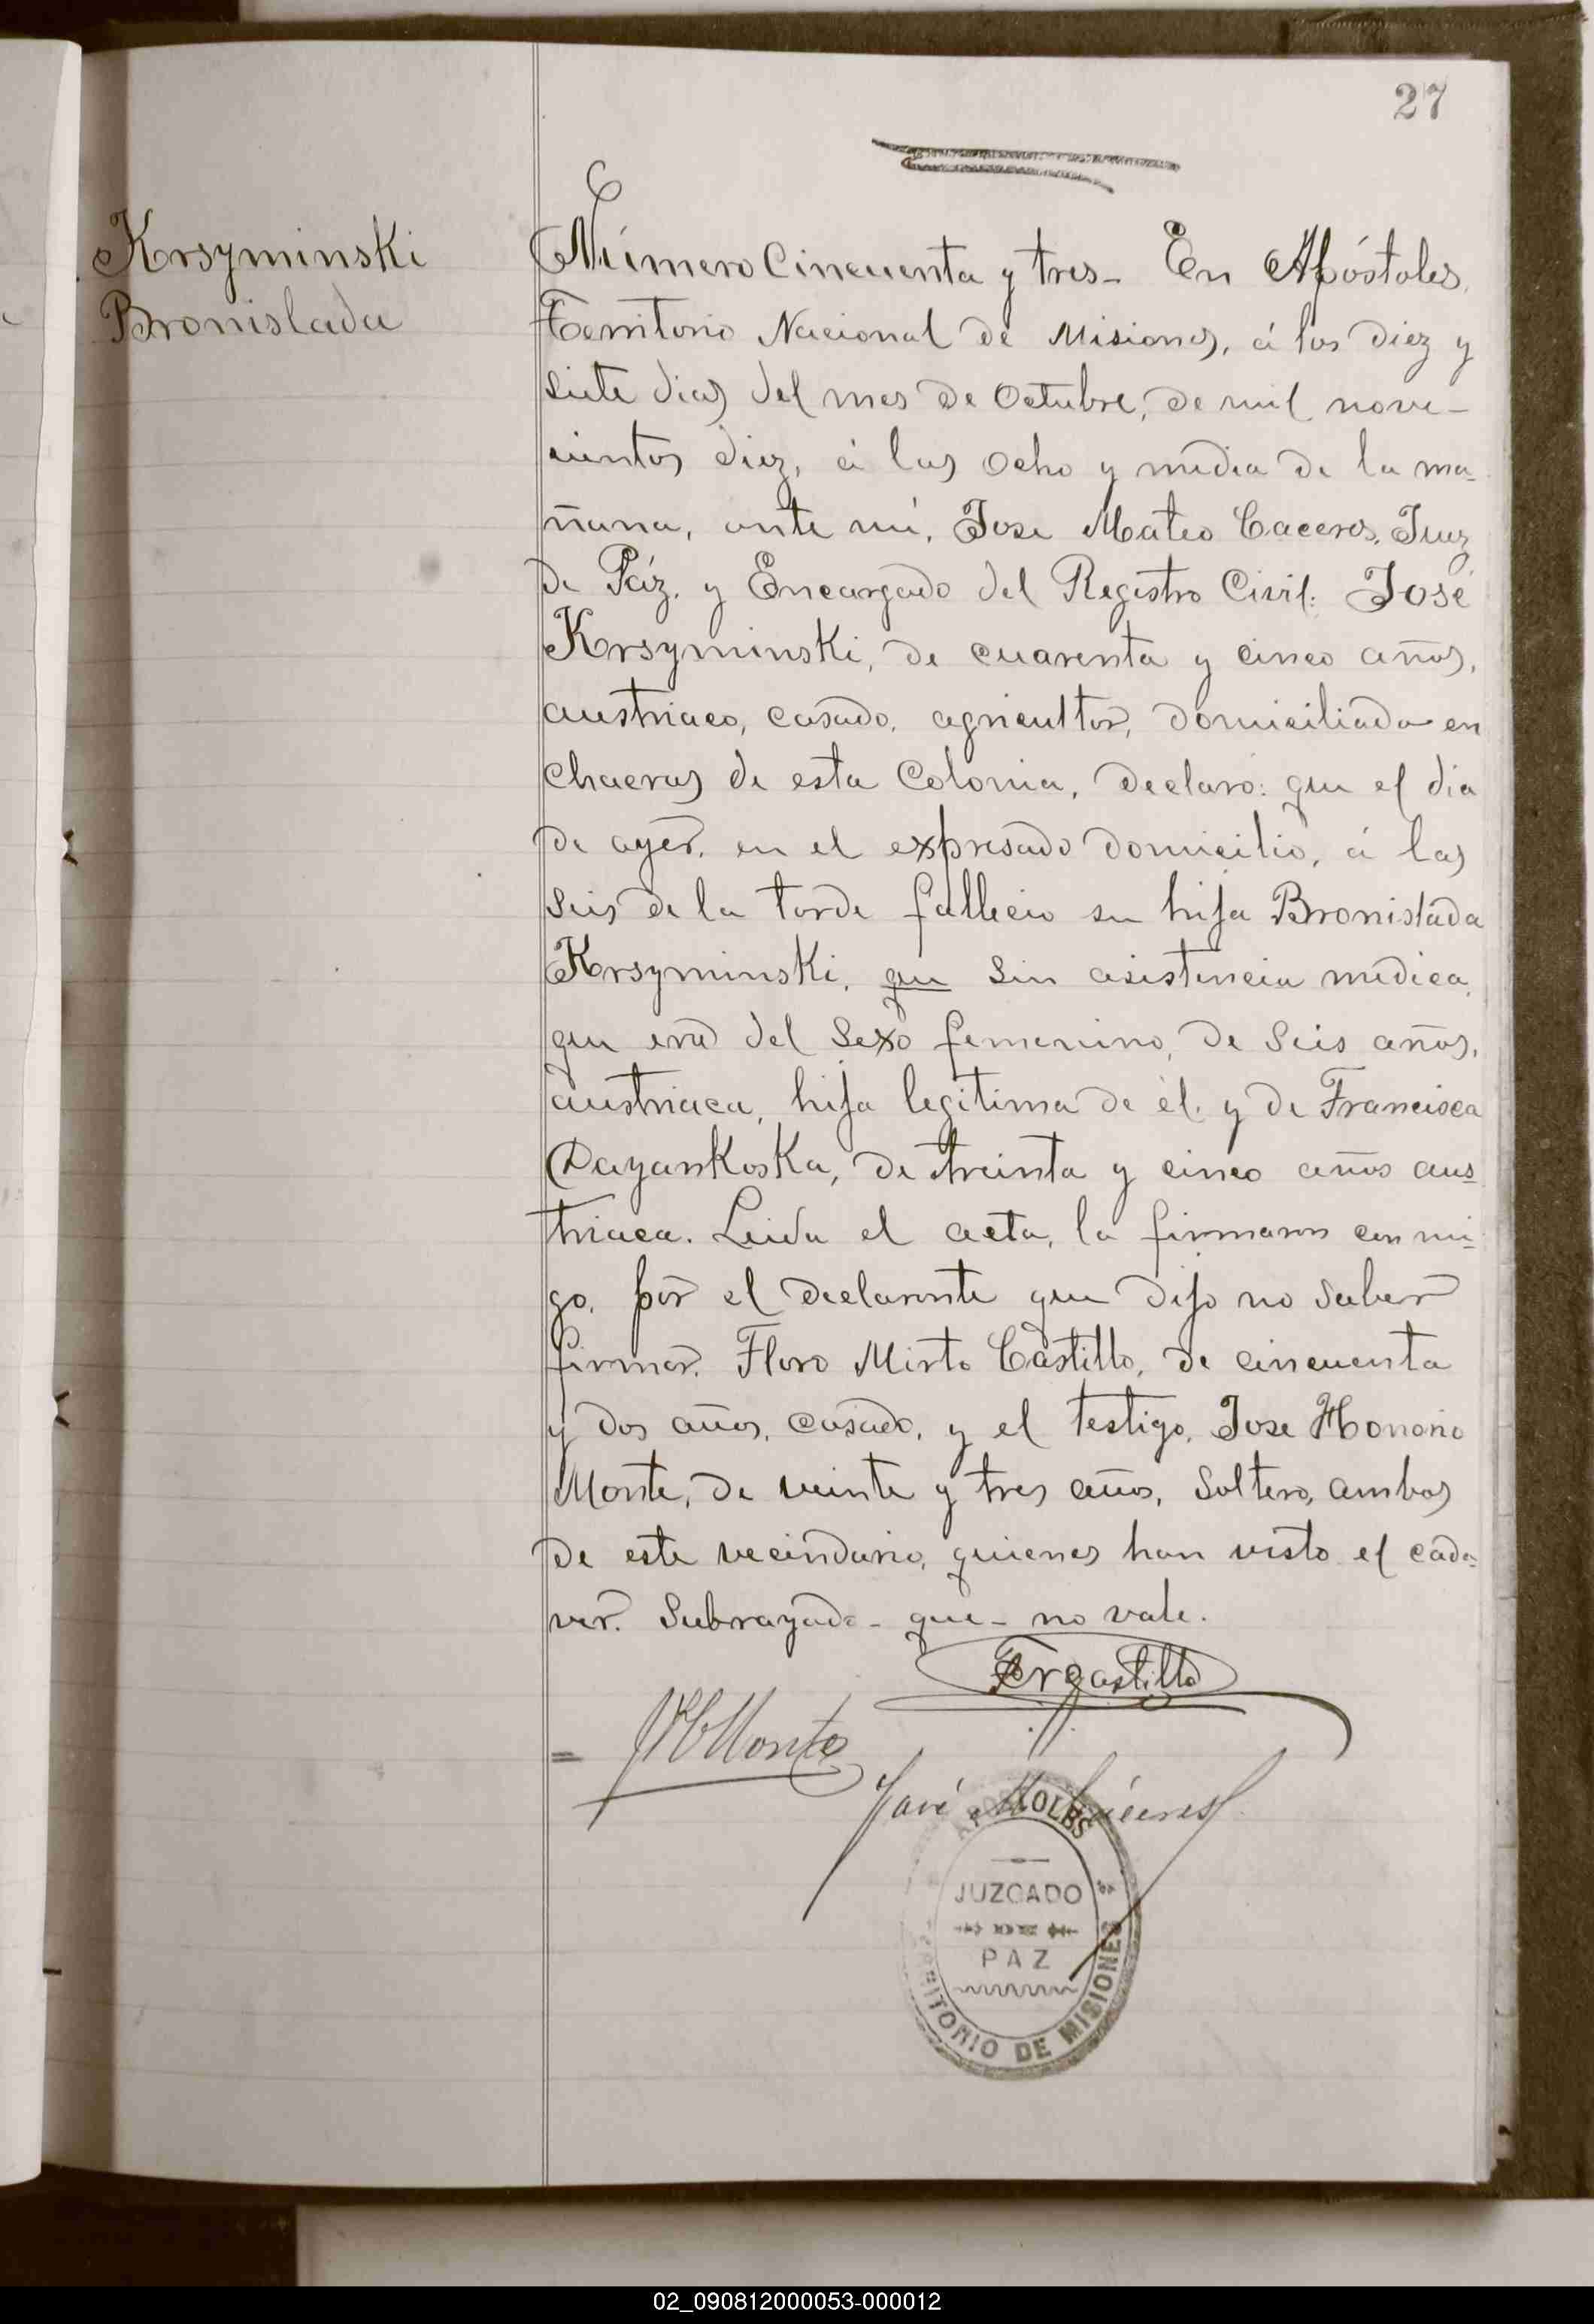 27
Krsyminski
Bronislada
Número Cincuenta y tres- En Apóstoles,
Territorio Nacional de Misiones, á los diez y
siete dias del mes de Octubre, de mil nove-
cientos diez, á las ocho y media de la ma-
ñana, ante mi, Jose Mateo Caceres, Juez
de Páz, y Encargado del Registro Civil: José
Krsyminski, de cuarenta y cinco años,
austriaco, casado, agricultor, domiciliado en
chacras de esta Colonia, declaro: que el dia
de ayer, en el expresado domicilio, á las
seis de la tarde fallecio su hija Bronislada
Krsyminski, que sin asistencia medica,
que era del sexo femenino, de seis años,
austriaca, hija legitima de él y de Francisca
Dayankoska, de treinta y cinco años aus-
triaca. Leida el acta, la firmaron con mi-
go, por el declarante que dijo no saber
firmar, Floro Mirto Castillo, de cincuenta
y dos años, casado, y el testigo, Jose Honorio
Monte, de veinte y tres años, soltero, ambos
de este vecindario, quienes han visto el cada-
ver. Subrayado - que - no vale.
Castillo
= Monte
José M. Cáceres
APOSTOLES
JUZGADO
PAZ
TERRITORIO DE MISIONES
02_090812000053-000012